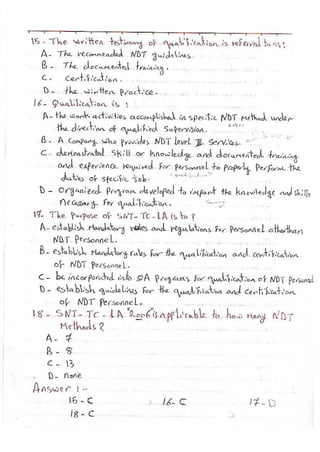 15- The written testimony of qualification is referred to as:
A- The recommended NDT guidelines
B- The documental training.
C- Certification.
D- the written Practice.
16- Qualification is :
A- the work activities accomplished in specific NDT Method under
the direction of qualified Supervision.
B- A Company who provides NDT level III Services.
C- demonstrated Skill or Knowledge and documented training
and experience required for personnel to properly perform the
duties of specific job.
D- Organized Program developed to impart the knowledge and skills
necessary for qualification.
17- The Purpose of SNT-TC-1A is to ?
A- establish Mandatory rules and regulations for Personnel other than
NDT Personnel.
B- establish Mandatory rules for the qualification and certification
of NDT Personnel.
C- be incorporated into QA Programs for qualification of NDT Personnel
D- establish guidelines for the qualification and certification
of NDT Personnel.
18- SNT-TC-1A 2006 is applicable to how Many NDT
Methods ?
A- 7
B- 8
C- 13
D- none
Answer :-
15- C 16- C 17- D
18- C